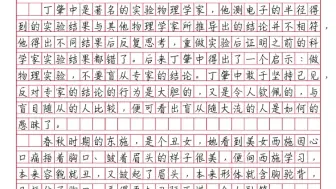 丁肇中是著名的实验物理学家，他测电子的半径得
到的实验结果与其他实验物理学家所推导出的结论并不相符。
他得出不同结果后反复思考，重做实验后证明之前的科
学家实验结果都错了。后来丁肇中得出了一个启示：做
物理实验，不要盲从专家的结论。丁肇中敢于坚持己见，
反对专家的结论的行为是大胆的，又是令人钦佩的，与
盲目随从的人比较，便可看出盲从随大流的人是如何的
愚昧了。
春秋时期的东施，是个丑女，她看到美女西施因心
口痛捂着胸口、皱着眉头的样子很美，便向西施学习，
本来容貌就丑，又皱起了眉头，本来形体就含胸驼背，